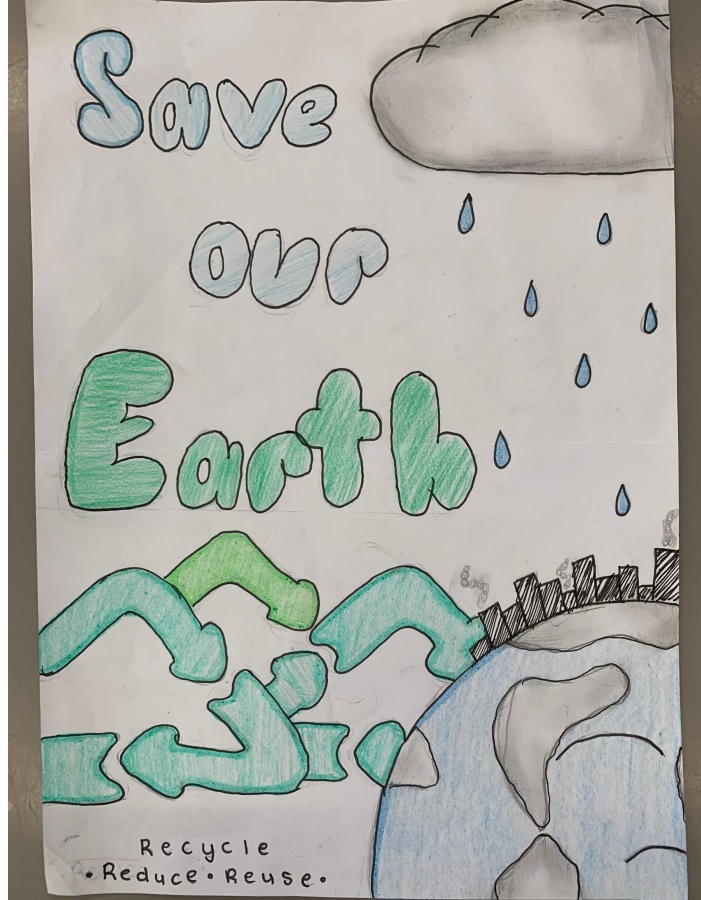 Save
our
Earth
Recycle
• Reduce • Reuse •